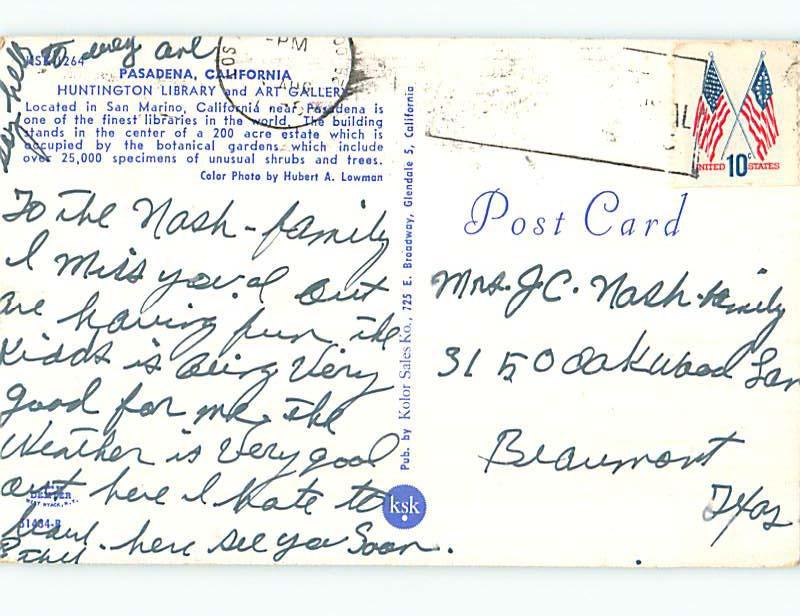 say hello
To every one
PM
AUG
PASADENA, CALIFORNIA
HUNTINGTON LIBRARY and ART GALLERY
Located in San Marino, California near Pasadena is
one of the finest libraries in the world. The building
stands in the center of a 200 acre estate which is
occupied by the botanical gardens which include
over 25,000 specimens of unusual shrubs and trees.
Color Photo by Hubert A. Lowman
To The Nash-family
I Miss you. I
are having fun. the
Kidds is Being Very
good for me, the
Weather is Very good
out here I hate to
leave. here see you Soon.
Ethel
DEXTER
WEST NYACK, N.Y.
51484-B
Pub. by Kolor Sales Ko., 725 E. Broadway, Glendale 5, California
ksk
UNITED 10c STATES
Post Card
Mrs. J.C. Nash-family
3150 Oakwood Lan
Beaumont
Texas